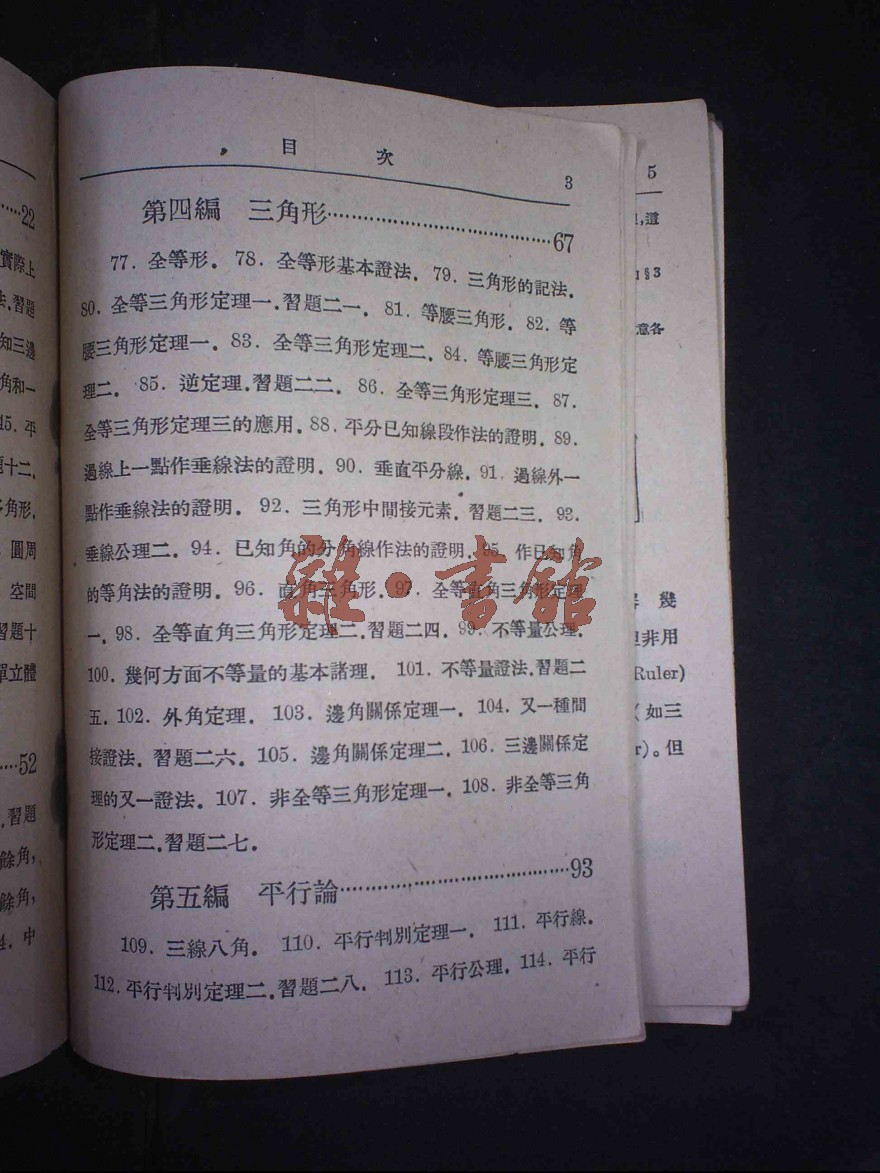 ……22
實際上
法.習題
知三邊
角和一
45. 平
題十二.
多角形.
圓周
空間
習題十
單立體
……52
.習題
餘角,
餘角,
4. 中
目 次
3
第四編 三角形……………………………67
77. 全等形. 78. 全等形基本證法. 79. 三角形的記法.
80. 全等三角形定理一.習題二一. 81. 等腰三角形. 82. 等
腰三角形定理一. 83. 全等三角形定理二. 84. 等腰三角形定
理二. 85. 逆定理.習題二二. 86. 全等三角形定理三. 87.
全等三角形定理三的應用. 88. 平分已知線段作法的證明. 89.
過線上一點作垂線法的證明. 90. 垂直平分線. 91. 過線外一
點作垂線法的證明. 92. 三角形中間接元素. 習題二三. 93.
垂線公理二. 94. 已知角的分角線作法的證明. 95. 作已知角
的等角法的證明. 96. 直角三角形. 97. 全等直角三角形定理
一. 98. 全等直角三角形定理二.習題二四. 99. 不等量公理.
100. 幾何方面不等量的基本諸理. 101. 不等量證法.習題二
五. 102. 外角定理. 103. 邊角關係定理一. 104. 又一種間
接證法. 習題二六. 105. 邊角關係定理二. 106. 三邊關係定
理的又一證法. 107. 非全等三角形定理一. 108. 非全等三角
形定理二.習題二七.
第五編 平行論……………………………93
109. 三線八角. 110. 平行判別定理一. 111. 平行線.
112. 平行判別定理二.習題二八. 113. 平行公理. 114. 平行
雜·書館
5
,道
§3
意各
幾
但非用
Ruler)
(如三
r)。但